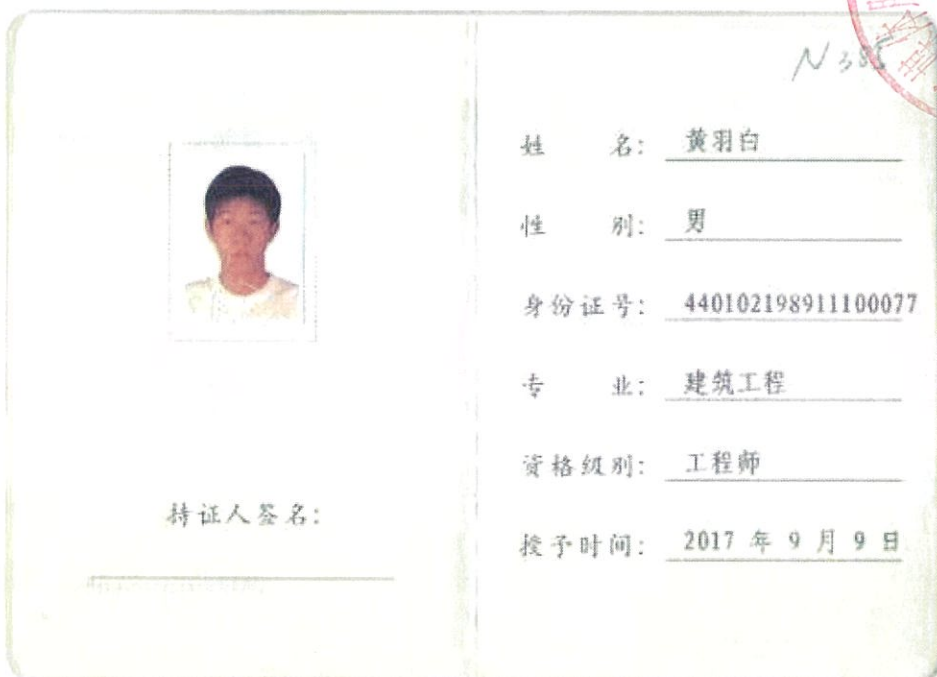 N385
姓 名: 黄羽白
性 别: 男
身份证号: 440102198911100077
专 业: 建筑工程
资格级别: 工程师
授予时间: 2017 年 9 月 9 日
持证人签名: